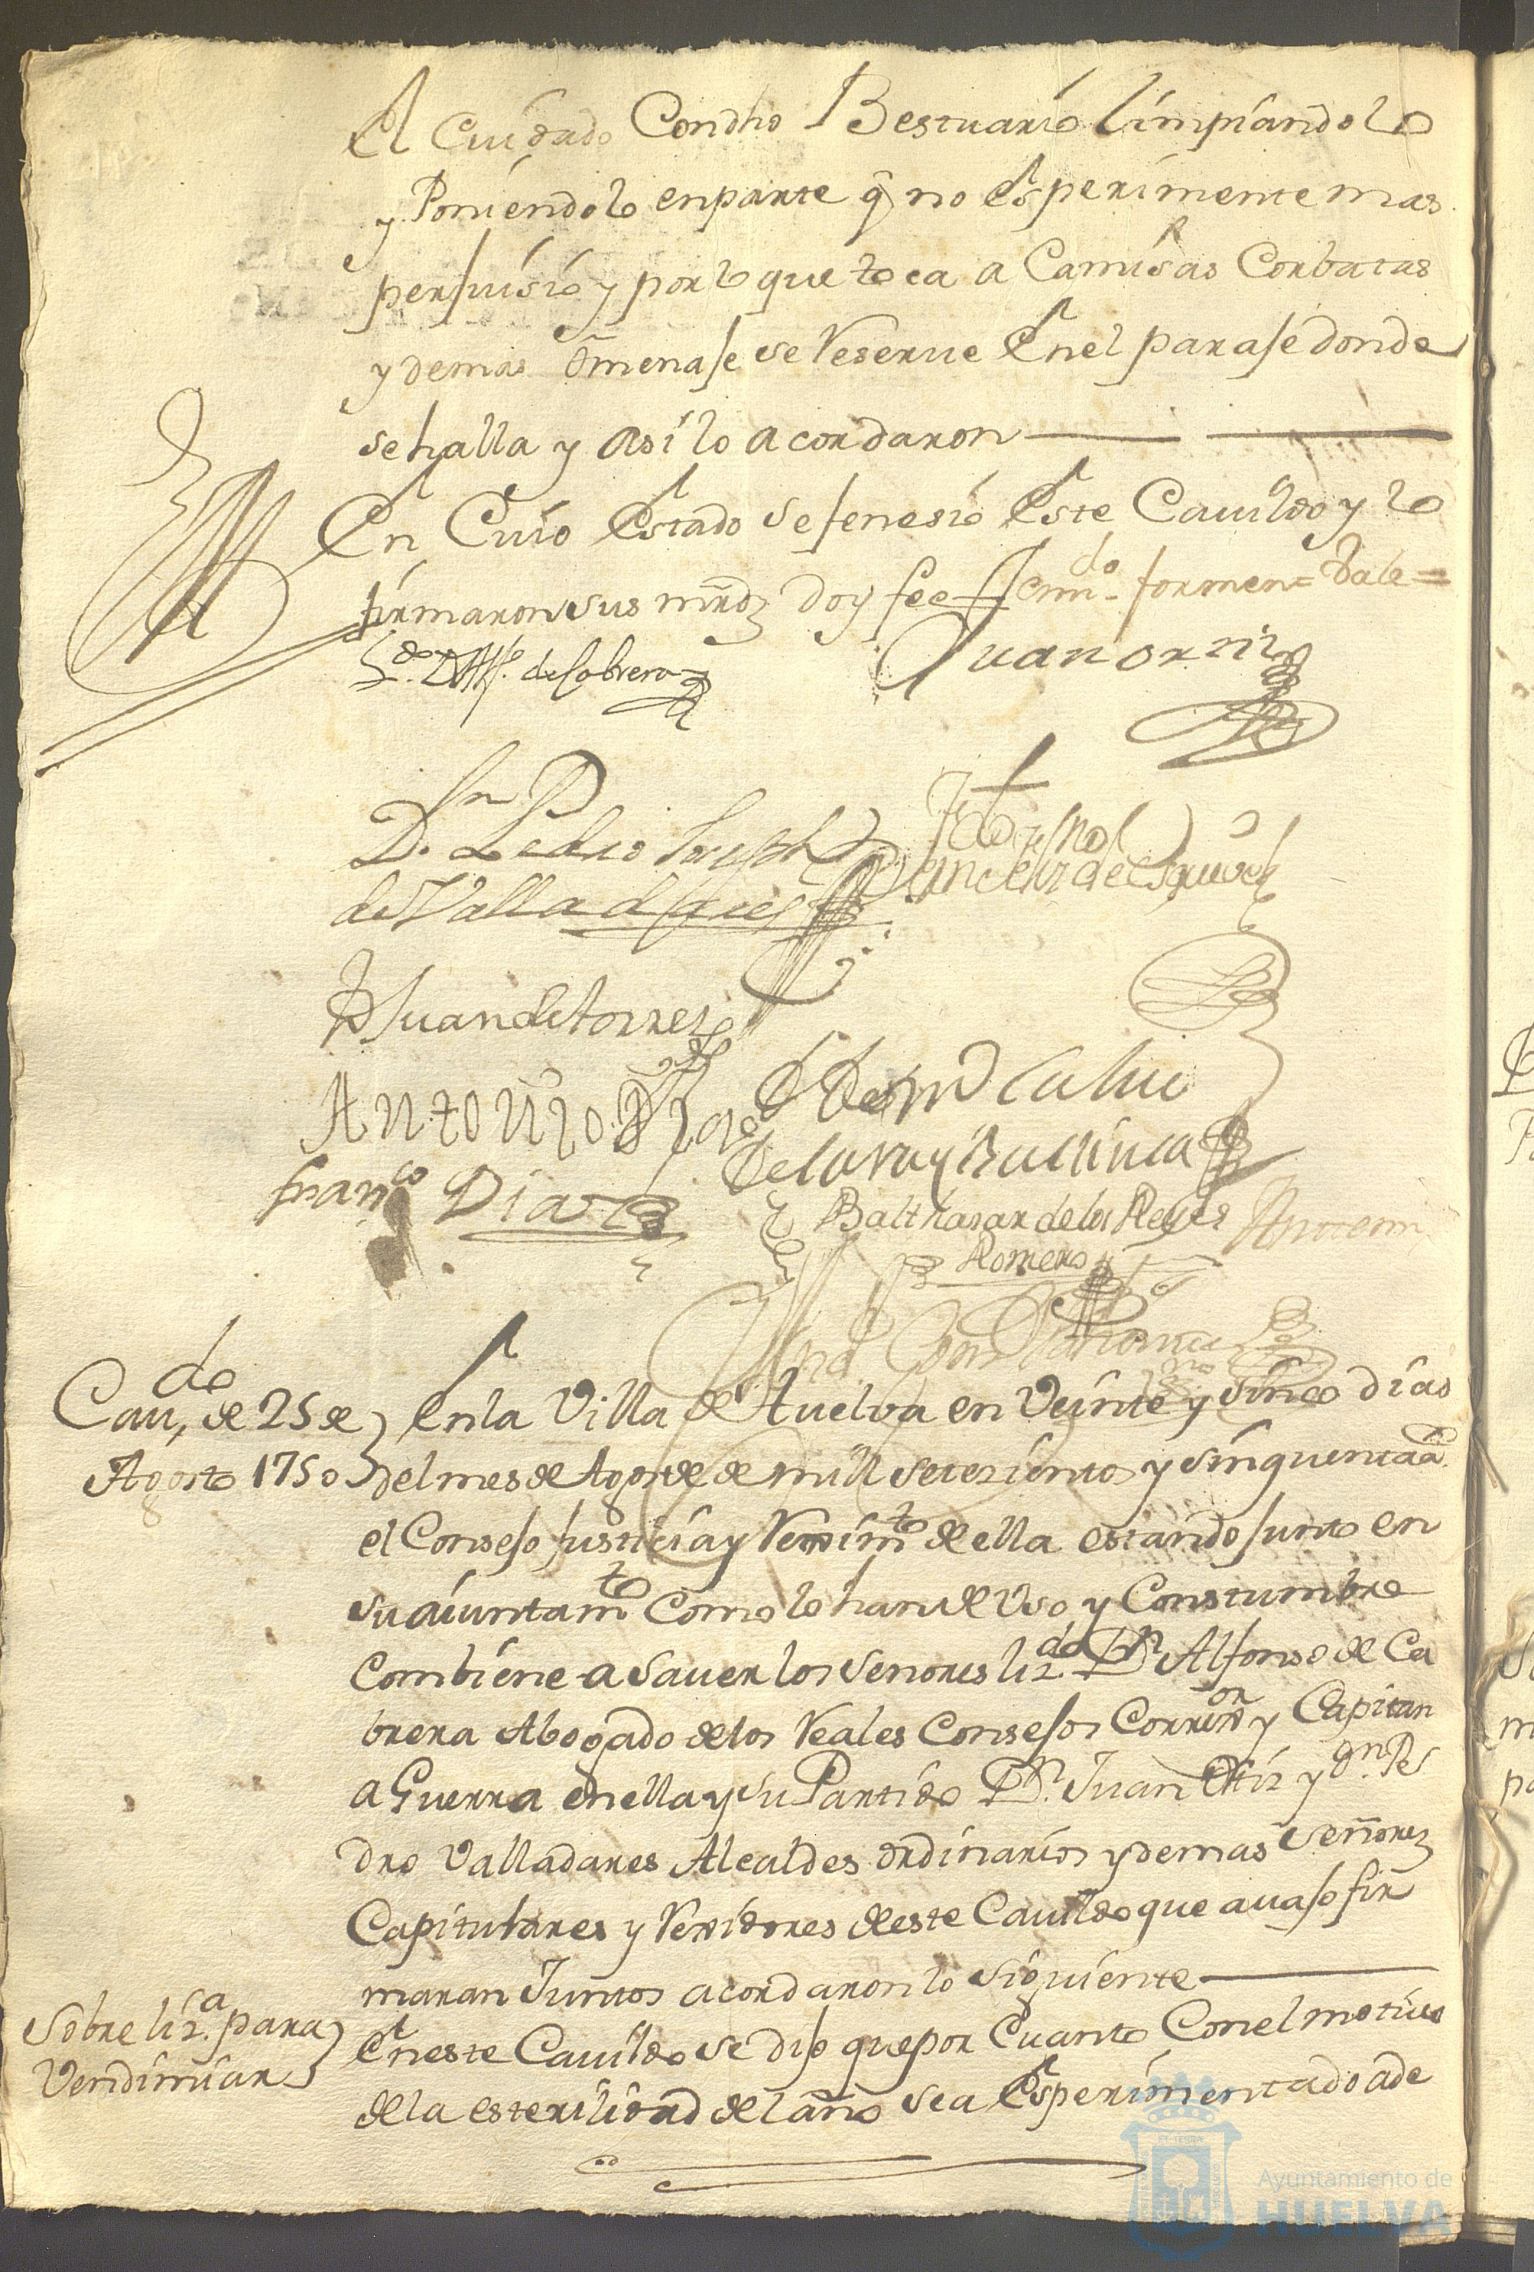 el Cuidado Condho Bestuario limpiandolo
y Poniendolo en parte q̃ no esperimente mas
perjuisio y por lo que toca a Camisas Corbatas
y demas omenaje se reserve en el paraje donde
se halla y asi lo acordaron
En Cuio estado se fenesio este Cavildo y lo
firmaron sus mrdz doy fee = Emdo. formen = Vale =
Ldo. Dn Alfo. de Cabrera
Juan ortiz
Dn. Pedro Joseph
de Valladares
de Esquivel
Dn Juan de torres
Antonio Dias
Franco Dias
de la ra y
Balthasar de los Reyes
Romero
Ante mi
Cavdo de 25 de
Agosto 1750
en la Villa de Huelva en Veinte y sinco dias
del mes de Agosto de mill setezientos y sinquenta a
el Consejo Justicia y Reximto de ella estando junto en
su aiuntamto Como lo han de Uso y Constumbre
Combiene a saver los senores lizdo Dn Alfonso de Ca
brera Abogado de los Reales Consejos Correxor y Capitan
a Guerra en ella y su Partido Dn. Juan Ortiz y Dn. Pe
dro Valladares Alcaldes ordinarios y demas señorez
Capitulares y Rexidores de este Cavildo que avajo fir
maran Juntos acordaron lo siguiente
Sobre liza. para
Vendimiar
En este Cavildo se dijo que por Cuanto Con el motivo
de la esterilidad del año se a esperimentado a de
Ayuntamiento de
HUELVA